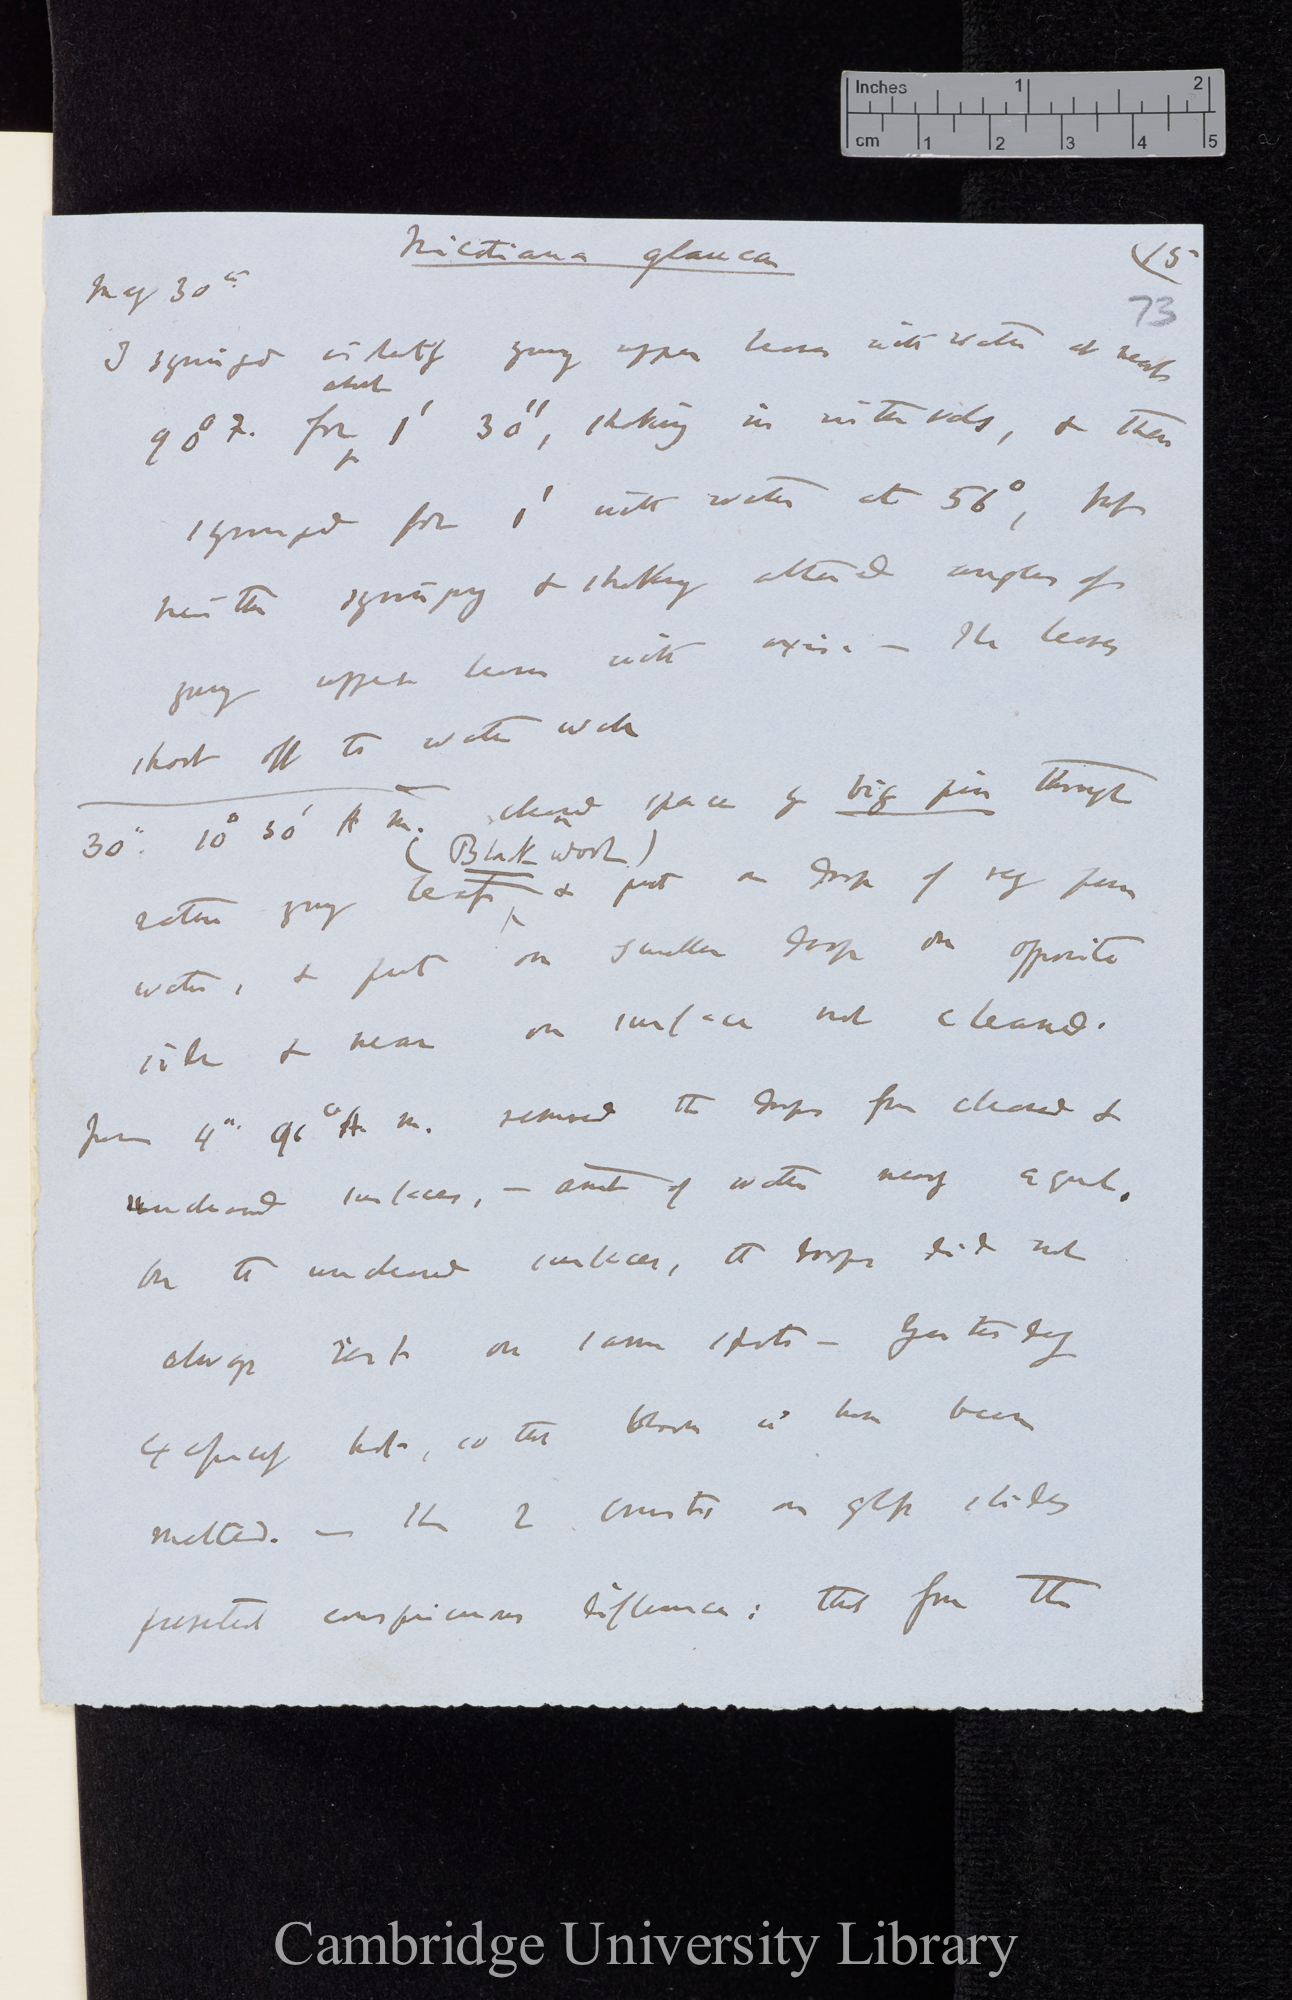 Inches 1 2
cm 1 2 3 4 5
Nicotiana glauca
(15
73
May 30th
I syringed violently young upper leaves with water at nearly
about
90° F. for 1' 30", shaking in intervals, & then
syringed for 1' with water at 56°, but
neither syringing & shaking altered angles of
young upper leaves with axis. — The leaves
shoot off the water well
30th. 10° 30' A m. cleaned space by big pin through
(Black wool)
rather young leaf, & put on drop of
water, & put on smaller drop on opposite
side & near on surface not cleaned.
June 4th. A m. removed the drops from cleaned &
uncleaned surfaces, — amt of water nearly equal.
On the uncleaned surfaces, the drops did not
always rest on same spots — Yesterday
especially hot, so that bloom may have been
melted. — The 2 crusts on glass slides
presented conspicuous difference: that from the
Cambridge University Library